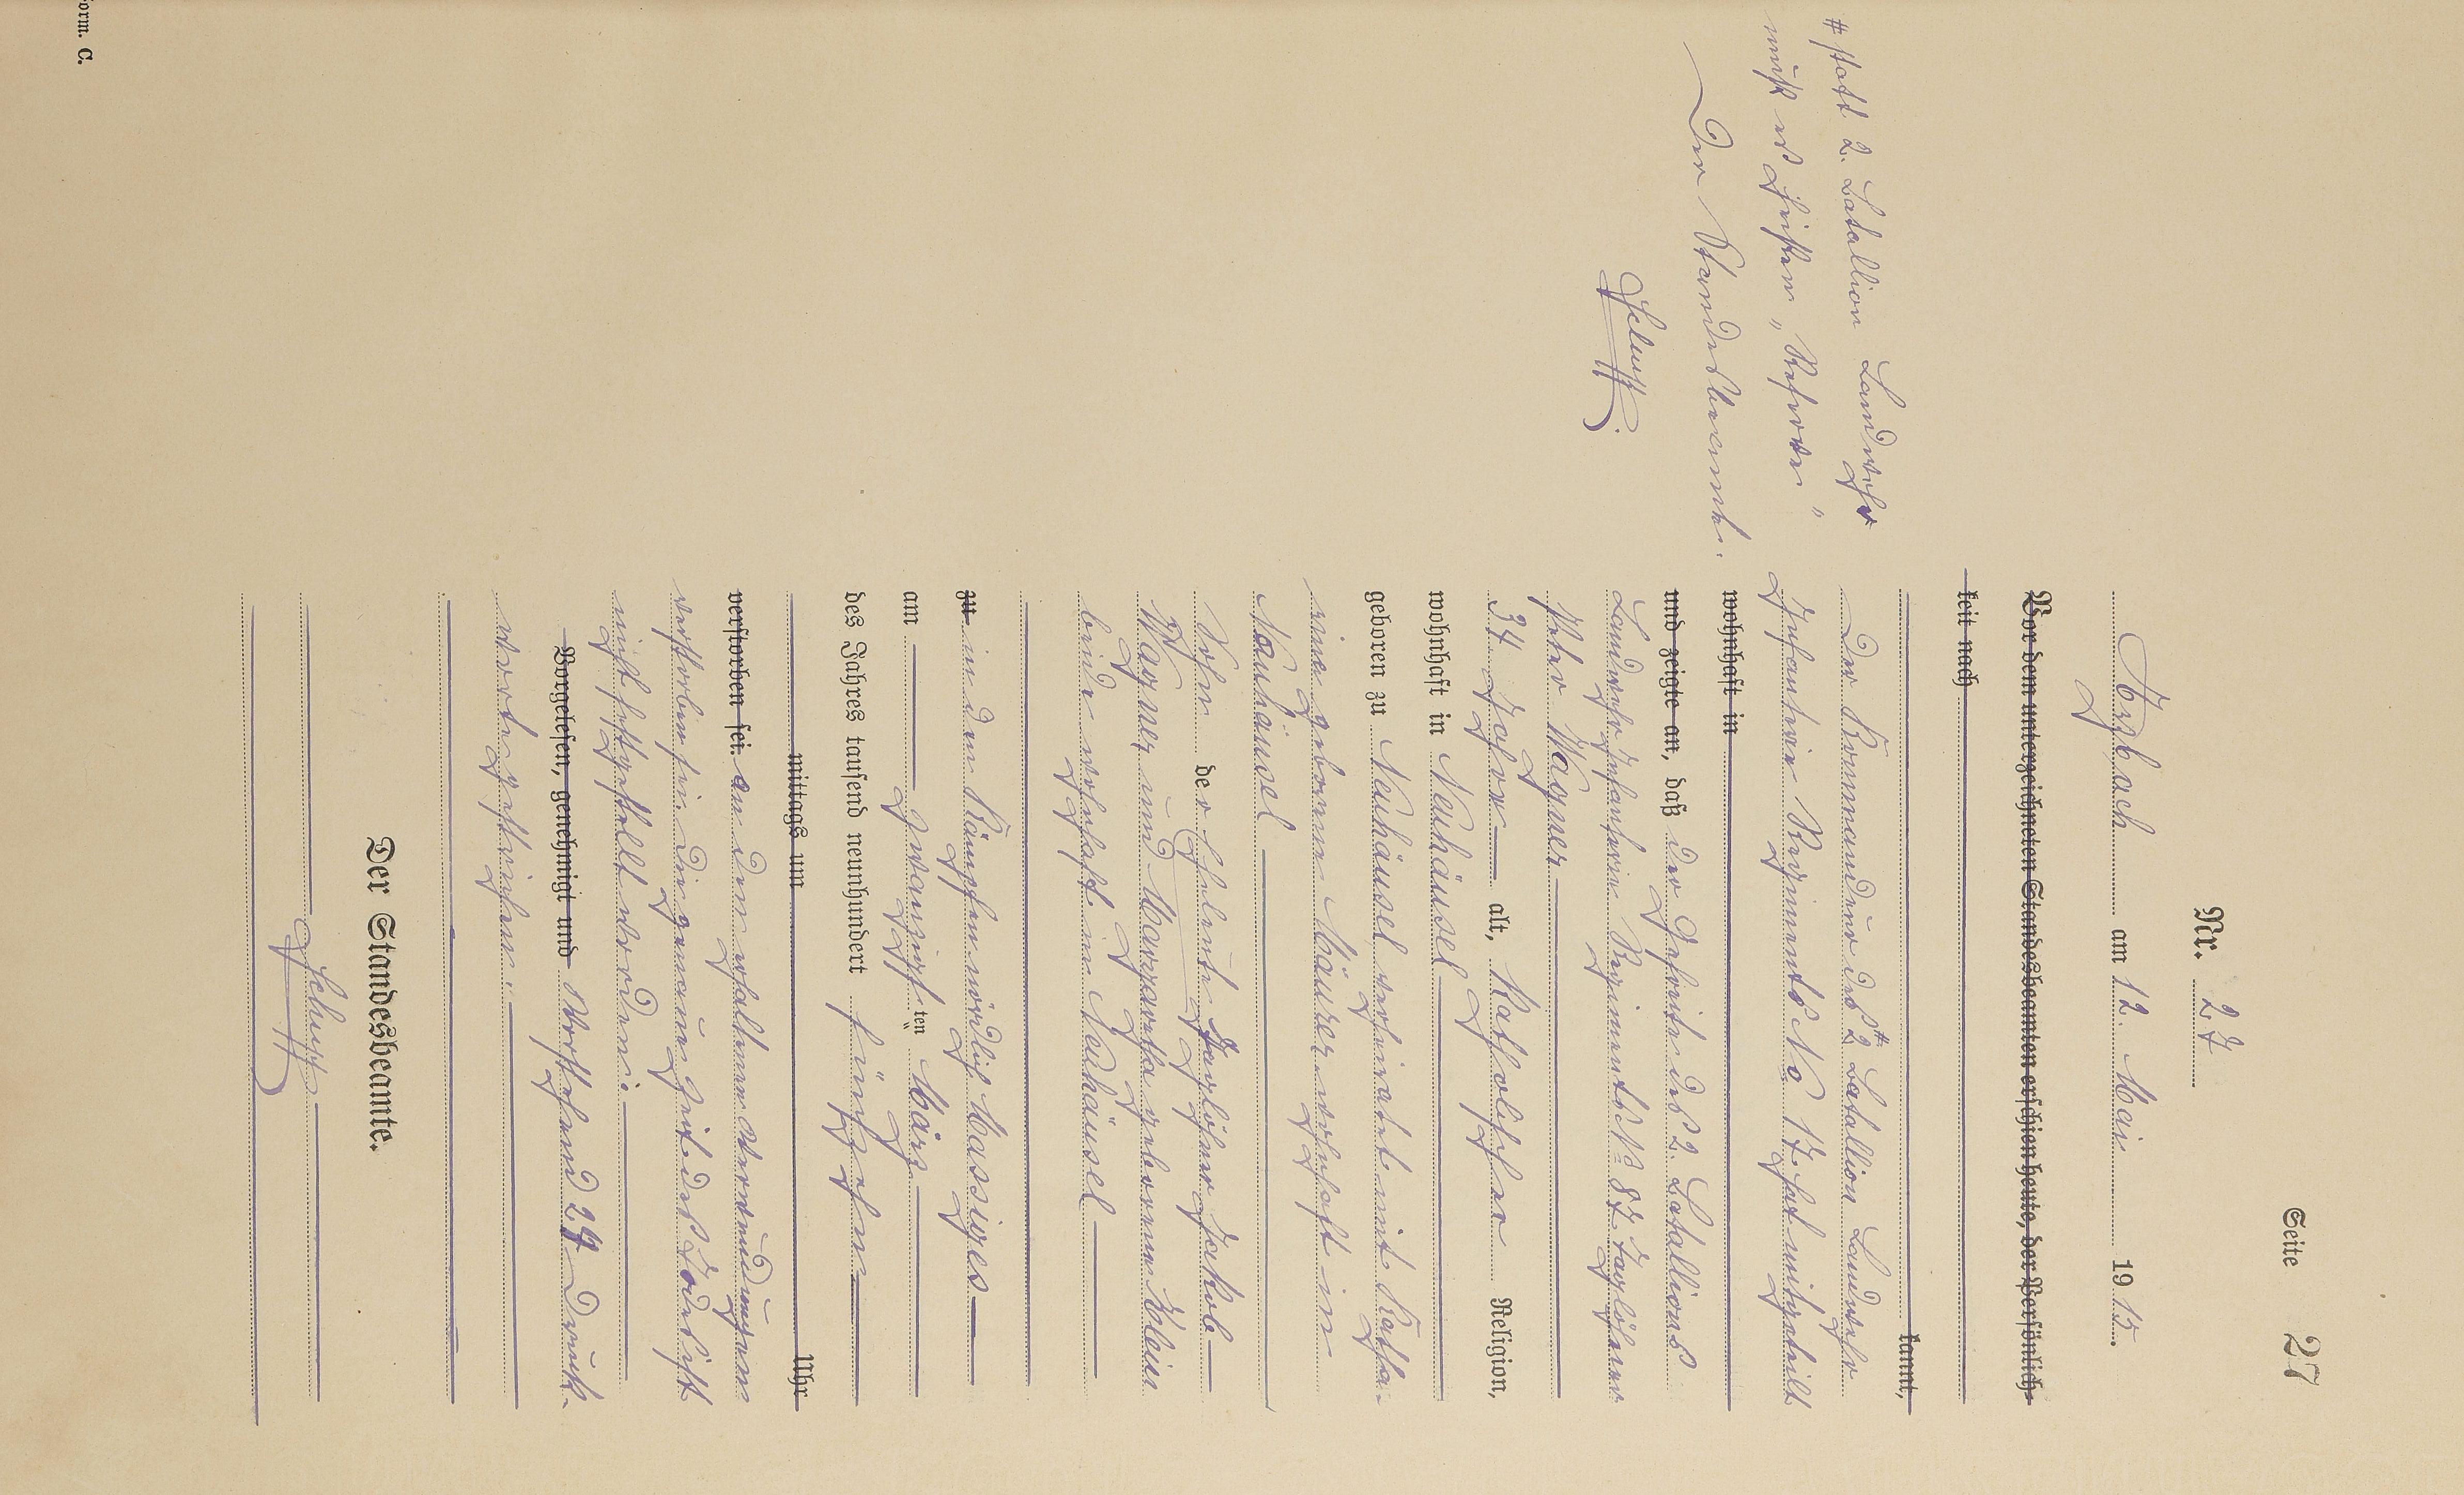 Seite 27
Nr. 27
Arzbach am 12. Mai 1915.
Vor dem unterzeichneten Standesbeamten erschien heute, der Persönlich-
keit nach
kannt,
Der Kommandeur des # 2 Batallion Landwehr
Infanterie Regiments No 17 hat mitgeteilt
wohnhaft in
und zeigte an, daß der Gefreite des 2. Batallions
Landwehr Infanterie Regiments No 87 Taglöhner
Peter Wagner
34 Jahre alt, Katholischer Religion,
wohnhaft in Neuhäusel
geboren zu Neuhäusel verheiratet mit Katha-
rine geborene Mäurer wohnhaft in
Neuhäusel
Sohn der Eheleute Taglöhner Jakob
Wagner und Margaretha geborene Klein
beide wohnhaft in Neuhäusel
zu in den Kämpfen nördlich Massiges
am zwanzigsten ten März
des Jahres tausend neunhundert fünfzehn
mittags um Uhr
verstorben sei. an den erhaltenen Verwundungen
verstorben sei. Die genaue Zeit des Todes ist
nicht festgestellt worden.
Vorgelesen, genehmigt und Vorstehend 29 Druck-
worte gestrichen.
Der Standesbeamte.
Schupp
# statt 2. Batallion Landwehr
muß es heißen „Reserve"
Der Standesbeamte.
Schupp
Form. C.